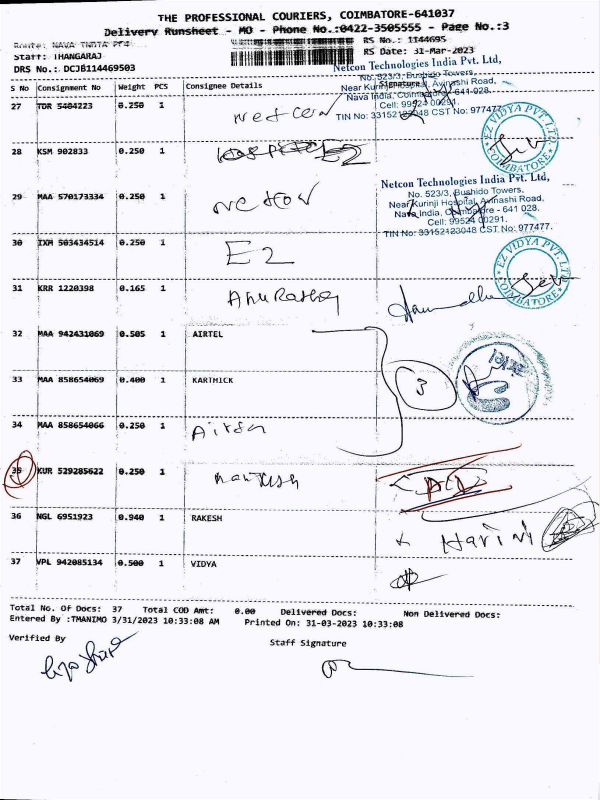 THE PROFESSIONAL COURIERS, COIMBATORE-641037
Delivery Runsheet - MO - Phone No.:0422-3505555 - Page No.:3
Route: NAVA INDIA
RS No.: 1144695
Staff: THANGARAJ
RS Date: 31-Mar-2023
DRS No.: DCJB114469503
Netcon Technologies India Pvt. Ltd,
No. 523/3, Bushido Towers,
Near Kurinji Hospital, Avinashi Road,
Nava India, Coimbatore - 641-028.
Cell: 99524 00291.
TIN No: 33152123048 CST No: 977477.
S No Consignment No Weight PCS Consignee Details Signature
27 TDR 5484223 0.250 1 Netcon
EZ VIDYA PVT. LTD
COIMBATORE
28 KSM 902833 0.250 1 EZ
Netcon Technologies India Pvt. Ltd,
No. 523/3, Bushido Towers,
Near Kurinji Hospital, Avinashi Road,
Nava India, Coimbatore - 641 028.
Cell: 99524 00291.
TIN No: 33152123048 CST No: 977477.
29 MAA 570173334 0.250 1 Netcon
30 IXM 503434514 0.250 1 EZ
EZ VIDYA PVT. LTD
COIMBATORE
31 KRR 1220398 0.165 1
32 MAA 942431069 0.505 1 AIRTEL
airtel
33 MAA 858654069 0.400 1 KARTHICK
3
34 MAA 858654066 0.250 1 Airtel
35 KUR 529285622 0.250 1
36 NGL 6951923 0.940 1 RAKESH
Harini
37 VPL 942085134 0.500 1 VIDYA
Total No. Of Docs: 37 Total COD Amt: 0.00 Delivered Docs: Non Delivered Docs:
Entered By :TMANIMO 3/31/2023 10:33:08 AM Printed On: 31-03-2023 10:33:08
Verified By
Staff Signature